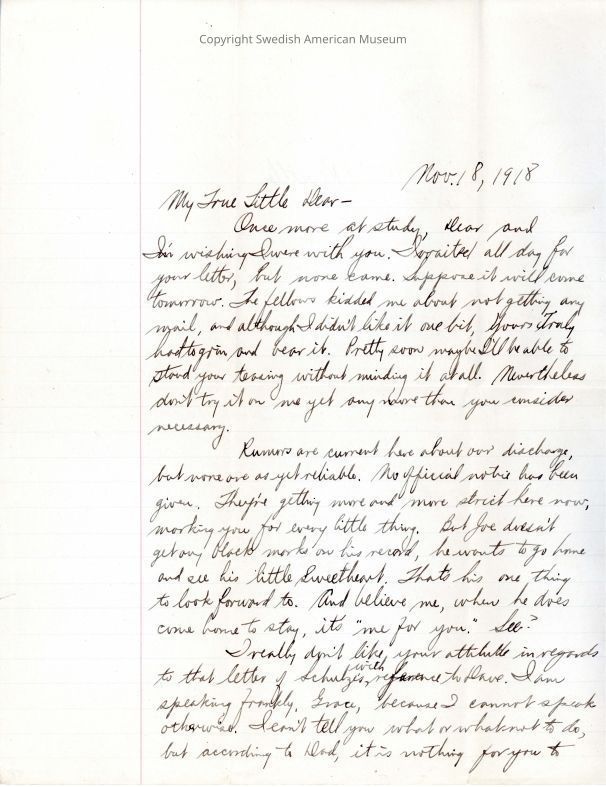 Copyright Swedish American Museum
Nov. 18, 1918
My True Little Dear—
Once more at study, Dear and
I'm wishing I were with you. I waited all day for
your letter, but none came. Suppose it will come
tomorrow. The fellows kidded me about not getting any
mail, and although I didn't like it one bit, Yours Truly
had to grin and bear it. Pretty soon maybe I'll be able to
stand your teasing without minding it at all. Nevertheless
don't try it on me yet any more than you consider
necessary.
Rumors are current here about our discharge,
but none are as yet reliable. No official notice has been
given. They're getting more and more strict here now,
marking you for every little thing. But Joe doesn't
get any black marks on his record, he wants to go home
and see his little Sweetheart. Thats his one thing
to look forward to. And believe me, when he does
come home to stay, its "me for you." See?
I really don't like, your attitude in regards
to that letter of Schulzes, with reference to Dave. I am
speaking frankly, Grace, because I cannot speak
otherwise. I can't tell you what or what not to do,
but according to Dad, it is nothing for you to